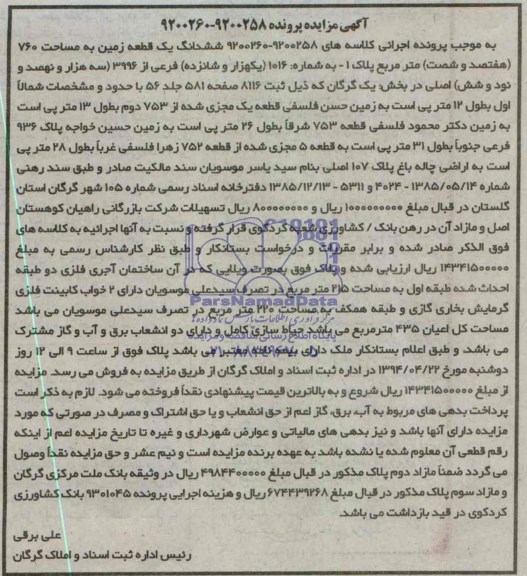 آگهی مزایده پرونده ۹۲۰۰۲۵۸-۹۲۰۰۲۶۰
به موجب پرونده اجرائی کلاسه های ۹۲۰۰۲۵۸-۹۲۰۰۲۶۰ ششدانگ یک قطعه زمین به مساحت ۷۶۰
(هفتصد و شصت) متر مربع پلاک ۱ - به شماره: ۱۰۱۶ (یکهزار و شانزده) فرعی از ۳۹۹۶ (سه هزار و نهصد و
نود و شش) اصلی در بخش: یک گرگان که ذیل ثبت ۸۱۱۶ صفحه ۵۸۱ جلد ۵۶ با حدود و مشخصات شمالاً
اول بطول ۱۲ متر پی است به زمین حسن فلسفی قطعه یک مجزی شده از ۷۵۳ دوم بطول ۱۳ متر پی است
به زمین دکتر محمود فلسفی قطعه ۷۵۳ شرقاً بطول ۲۶ متر پی است به زمین حسین خواجه پلاک ۹۳۶
فرعی جنوباً بطول ۳۱ متر پی است به قطعه ۵ مجزی شده از قطعه ۷۵۲ زهرا فلسفی غرباً بطول ۲۸ متر پی
است به اراضی چاله باغ پلاک ۱۰۷ اصلی بنام سید یاسر موسویان سند مالکیت صادر و طبق سند رهنی
شماره ۱۳۸۵/۰۵/۱۴ - ۴۰۲۴ و ۵۳۱۱ - ۱۳۸۵/۱۲/۱۳ دفترخانه اسناد رسمی شماره ۱۰۵ شهر گرگان استان
گلستان در قبال مبلغ ۱۰۰۰۰۰۰۰۰۰ ریال و ۸۰۰۰۰۰۰۰۰ ریال تسهیلات شرکت بازرگانی راهیان کوهستان
اصل و مازاد آن در رهن بانک / کشاورزی شعبه کردکوی قرار گرفته و نسبت به آنها اجرائیه به کلاسه های
فوق الذکر صادر شده و برابر مقررات و درخواست بستانکار و طبق نظر کارشناس رسمی به مبلغ
۱۴۳۴۱۵۰۰۰۰۰ ریال ارزیابی شده و پلاک فوق بصورت ویلایی که در آن ساختمان آجری فلزی دو طبقه
احداث شده طبقه اول به مساحت ۲۱۵ متر مربع در تصرف سیدعلی موسویان دارای ۲ خواب کابینت فلزی
گرمایش بخاری گازی و طبقه همکف به مساحت ۲۲۰ متر مربع در تصرف سیدعلی موسویان می باشد
مساحت کل اعیان ۴۳۵ مترمربع می باشد حیاط سازی کامل و دارای دو انشعاب برق و آب و گاز مشترک
می باشد. و طبق اعلام بستانکار ملک دارای بیمه نامه معتبر می باشد پلاک فوق از ساعت ۹ الی ۱۲ روز
دوشنبه مورخ ۱۳۹۴/۰۴/۲۲ در اداره ثبت اسناد و املاک گرگان از طریق مزایده به فروش می رسد. مزایده
از مبلغ ۱۴۳۴۱۵۰۰۰۰۰ ریال شروع و به بالاترین قیمت پیشنهادی نقداً فروخته می شود. لازم به ذکر است
پرداخت بدهی های مربوط به آب، برق، گاز اعم از حق انشعاب و یا حق اشتراک و مصرف در صورتی که مورد
مزایده دارای آنها باشد و نیز بدهی های مالیاتی و عوارض شهرداری و غیره تا تاریخ مزایده اعم از اینکه
رقم قطعی آن معلوم شده یا نشده باشد به عهده برنده مزایده است و نیم عشر و حق مزایده نقداً وصول
می گردد ضمناً مازاد دوم پلاک مذکور در قبال مبلغ ۴۹۸۴۴۰۰۰۰۰ ریال در وثیقه بانک ملت مرکزی گرگان
و مازاد سوم پلاک مذکور در قبال مبلغ ۶۷۴۴۳۹۲۶۸ ریال و هزینه اجرایی پرونده ۹۳۰۱۰۴۵ بانک کشاورزی
کردکوی در قید بازداشت می باشد.
علی برقی
رئیس اداره ثبت اسناد و املاک گرگان
ParsNamadData